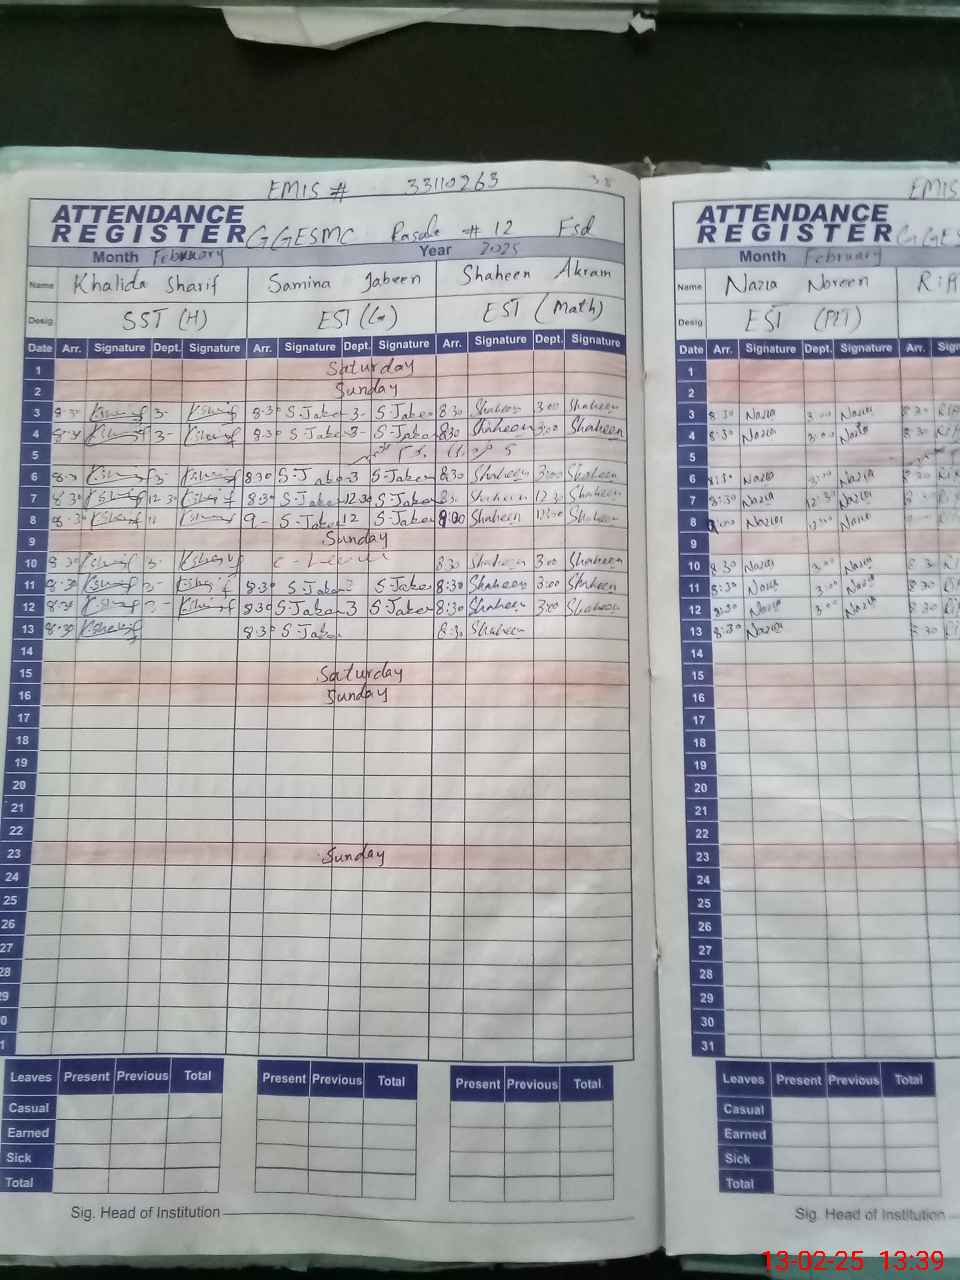 EMIS # 33110263 38
ATTENDANCE
REGISTER GGESMC Rasala # 12 Fsd
Month February Year 2025
Name Khalida Sharif Samina Jabeen Shaheen Akram
Desig SST (H) EST ( EST (Math)
Date Arr. Signature Dept. Signature Arr. Signature Dept. Signature Arr. Signature Dept. Signature
1 Saturday
2 Sunday
3 8:30 Ksharif 3- Ksharif 8:30 S-Jabeen 3- S-Jabeen 8:30 Shaheen 3:00 Shaheen
4 8:30 Ksharif 3- Ksharif 8:30 S-Jabeen 3- S-Jabeen 8:30 Shaheen 3:00 Shaheen
5
6 8:30 Ksharif 3- Ksharif 8:30 S-Jabeen 3 S-Jabeen 8:30 Shaheen 3:00 Shaheen
7 8:30 Ksharif 12:30 Ksharif 8:30 S-Jabeen 12:30 S-Jabeen 8:30 Shaheen 12:30 Shaheen
8 8:30 Ksharif Ksharif 9- S-Jabeen 12 S-Jabeen 9:00 Shaheen 12:00 Shaheen
9 Sunday
10 8:30 Ksharif 3- Ksharif C-Leave 8:30 Shaheen 3:00 Shaheen
11 8:30 Ksharif 3- Ksharif 8:30 S-Jabeen 3 S-Jabeen 8:30 Shaheen 3:00 Shaheen
12 8:30 Ksharif 3- Ksharif 8:30 S-Jabeen 3 S-Jabeen 8:30 Shaheen 3:00 Shaheen
13 8:30 Ksharif 8:30 S-Jabeen 8:30 Shaheen
14
15 Saturday
16 Sunday
17
18
19
20
21
22
23 Sunday
24
25
26
27
28
29
0
1
Leaves Present Previous Total Present Previous Total Present Previous Total
Casual
Earned
Sick
Total
Sig. Head of Institution
EMIS
ATTENDANCE
REGISTER GGES
Month February
Name Nazia Noreen
Desig EST (PET)
Date Arr. Signature Dept. Signature Arr.
1
2
3 8:30 Nazia 3:00 Nazia 8:30
4 8:30 Nazia 3:00 Nazia 8:30
5
6 8:30 Nazia 3:00 Nazia 8:30
7 8:30 Nazia 12:30 Nazia
8 9:00 Nazia 12:00 Nazia
9
10 8:30 Nazia 3:00 Nazia 8:30
11 8:30 Nazia 3:00 Nazia 8:30
12 8:30 Nazia 3:00 Nazia 8:30
13 8:30 Nazia 8:30
14
15
16
17
18
19
20
21
22
23
24
25
26
27
28
29
30
31
Leaves Present Previous Total
Casual
Earned
Sick
Total
Sig. Head of Institution
13-02-25 13:39